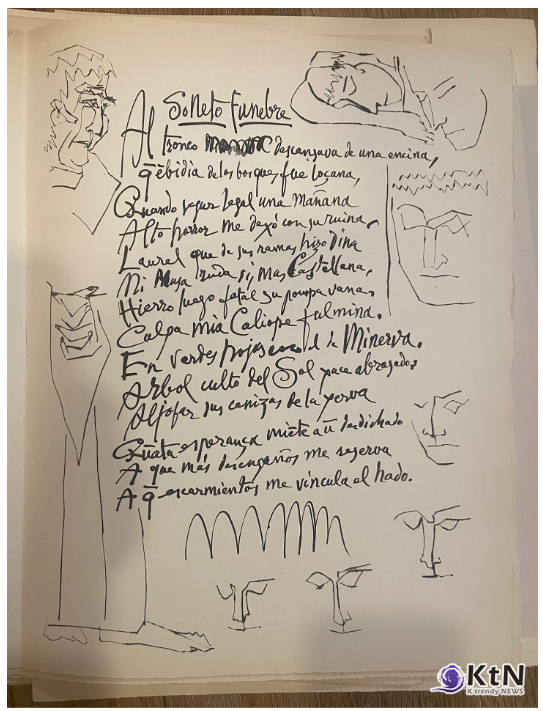 Soneto Funebre
Al tronco descansava de una encina,
q̄ ebidia de los bosques fue loçana,
Quando segur legal una mañana
Alto horror me dexó con su ruina.
Laurel que de sus ramas hizo dina
Mi Musa ruda si, mas Castellana,
Hierro luego fatal su pompa vana,
Culpa mia Caliope fulmina.
En verdes hojas el de Minerva.
Arbol culto del Sol yace abrasado:
Aljofar sus cenizas de la yerva
Quāta esperança miēte a ū desdichado
A que más desengaños me reserva
A q̄ escarmientos me vincula el hado.
KtN
K trendy NEWS